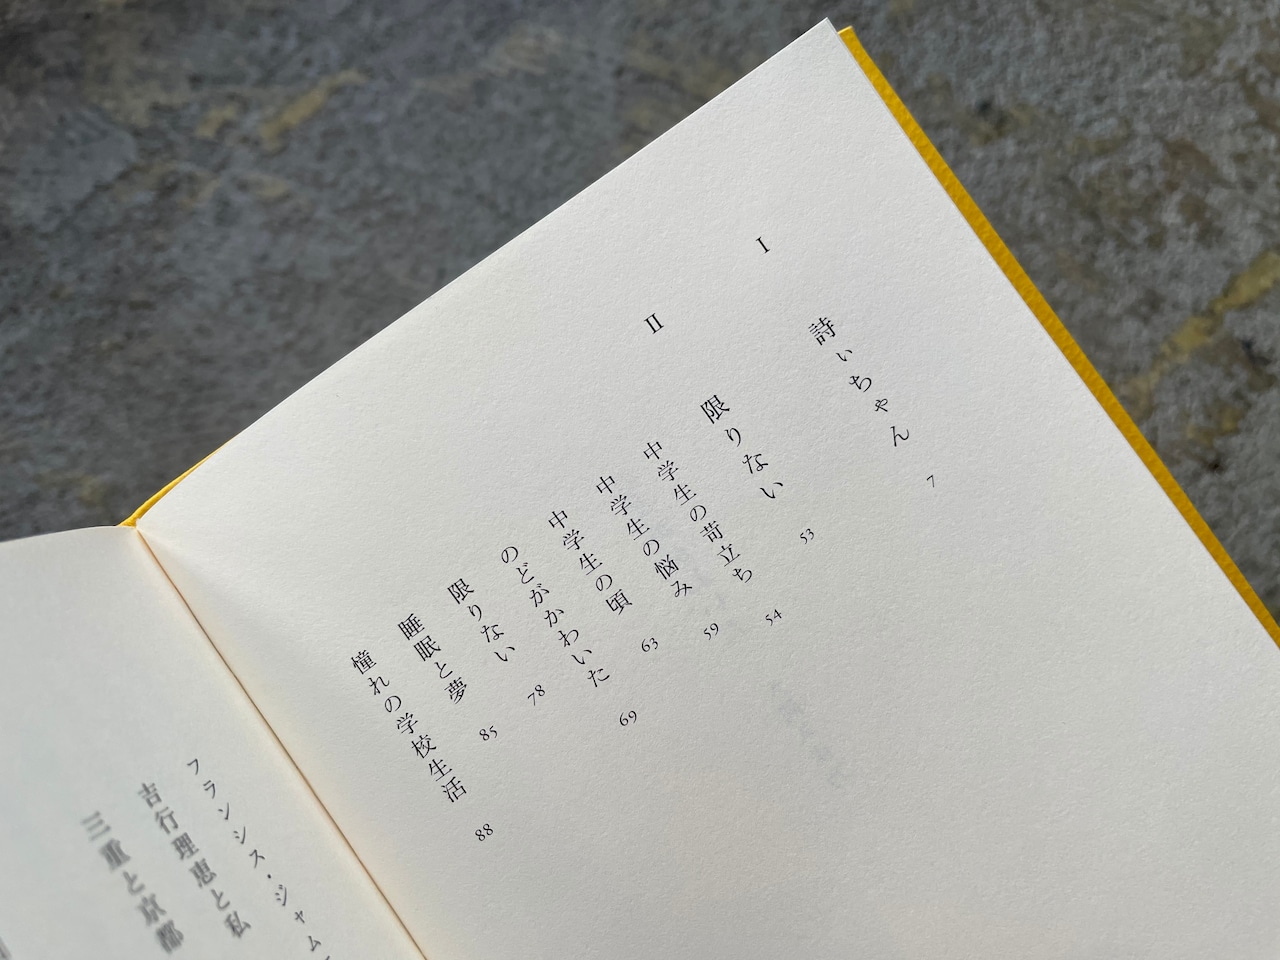 I
詩ぃちゃん 7
II
限りない 53
中学生の苛立ち 54
中学生の悩み 59
中学生の頃 63
のどがかわいた 69
限りない 78
睡眠と夢 85
憧れの学校生活 88
フランシス・ジャム
吉行理恵と私
三重と京都